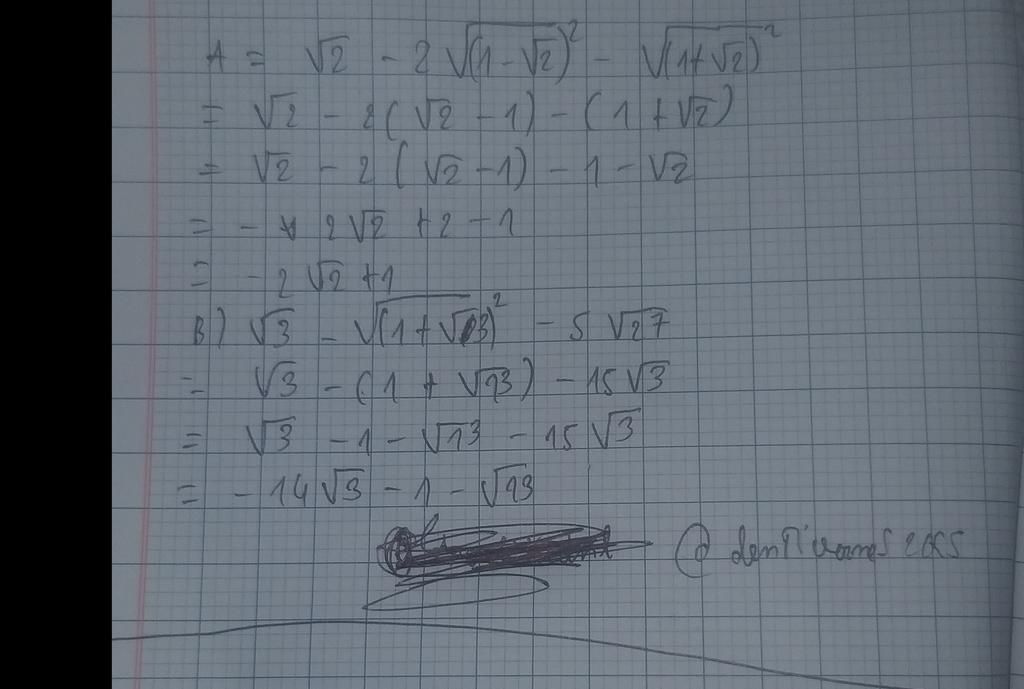 A = √2 - 2√(1-√2)² - √(1+√2)²
= √2 - 2(√2 - 1) - (1 + √2)
= √2 - 2(√2 - 1) - 1 - √2
= - 2√2 + 2 - 1
= - 2√2 + 1
B) √3 - √(1+√13)² - 5√27
= √3 - (1 + √13) - 15√3
= √3 - 1 - √13 - 15√3
= - 14√3 - 1 - √13
@